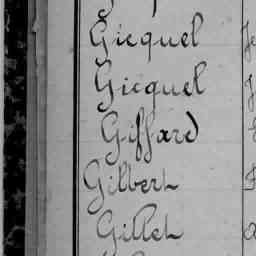 Gicquel
Gicquel
Giffard
Gilbert
Gillet